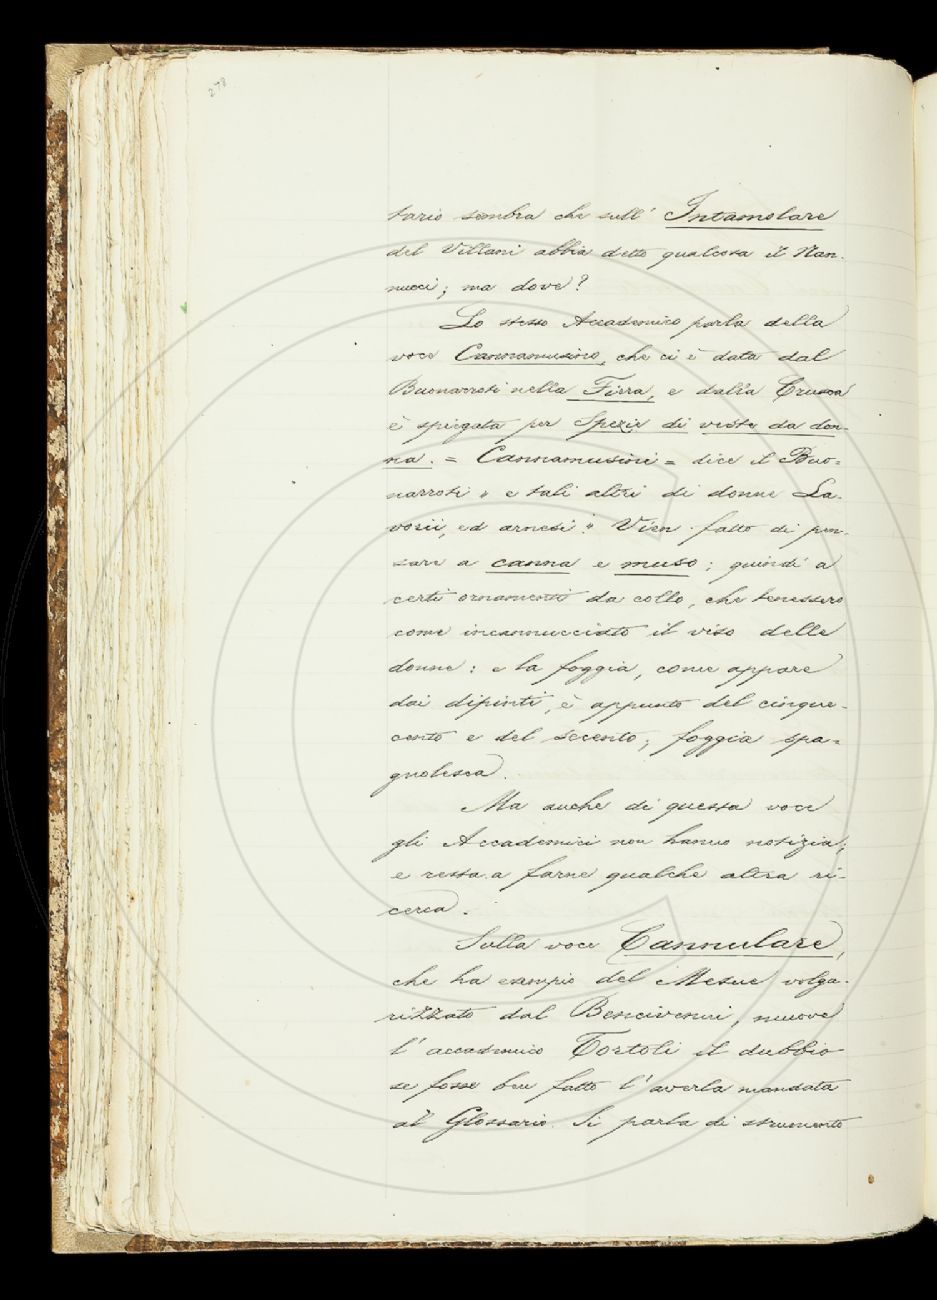 278
tario sembra che sull' Intamolare
del Villani abbia detto qualcosa il Nan-
nucci; ma dove?
Lo stesso Accademico parla della
voce Cannamusino, che ci è data dal
Buonarroti nella Fiera, e dalla Crusca
è spiegata per Spezie di veste da don-
na. = Cannamusini = dice il Buo=
narroti " e tali altri di donne La-
vorii, ed arnesi ". Vien fatto di pen-
sare a canna e muso; quindi a
certi ornamenti da collo, che tenessero
come incannucciato il viso delle
donne: e la foggia, come appare
dai dipinti, è appunto del cinque-
cento e del secento; foggia spa=
gnolesca.
Ma anche di questa voce
gli Accademici non hanno notizia;
e resta a farne qualche altra ri-
cerca.
Sulla voce Cannulare,
che ha esempio del Mesue volga-
rizzato dal Bencivenni, muove
l' accademico Tortoli il dubbio
se fosse ben fatto l' averla mandata
al Glossario. Si parla di strumento